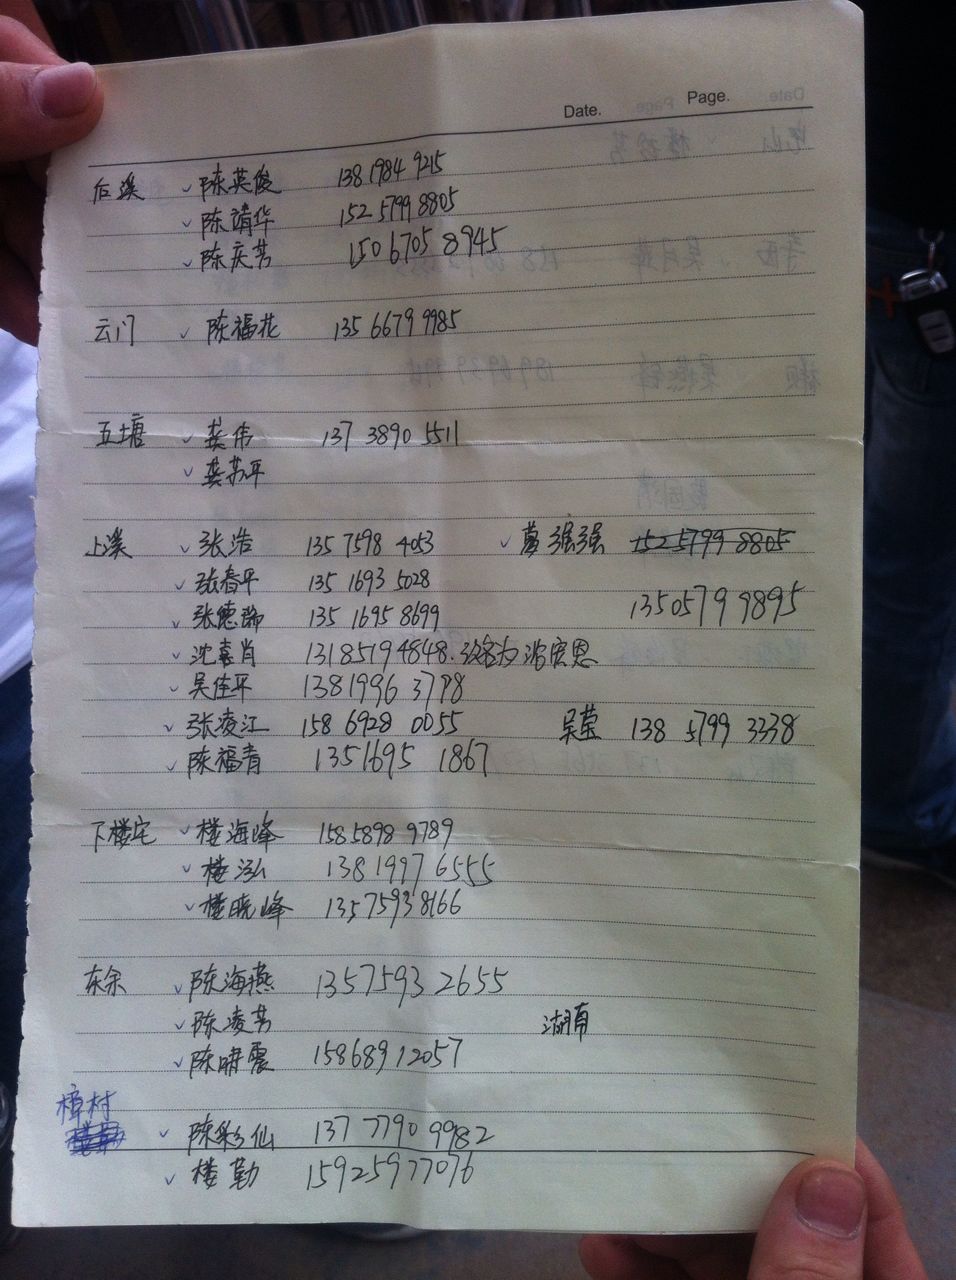 Date. Page.
后溪 ✓ 陈英俊 138 1984 9215
✓ 陈靖华 152 5799 8805
✓ 陈庆芳 150 6705 8945
云门 ✓ 陈福花 135 6679 9985
五塘 ✓ 龚伟 137 3890 5511
✓ 龚苏平
上溪 ✓ 张浩 135 7598 4053 ✓ 强强 152 5799 8805
✓ 张春平 135 1693 5028
✓ 张德瑞 135 1695 8699 13505799895
✓ 沈嘉肖 13185194848.
✓ 吴佳平 1381996 3798
✓ 张凌江 158 6928 0055 吴莹 138 5799 3338
✓ 陈福青 1351695 1867
下楼宅 ✓ 楼海峰 158 5898 9789
✓ 楼泓 13819976555
✓ 楼晓峰 13575938166
东余 ✓ 陈海燕 1357593 2655
✓ 陈凌芳 湖南
✓ 陈啸震 15868912057
樟村
✓ 陈彩仙 137 7790 9982
✓ 楼勤 15925977076